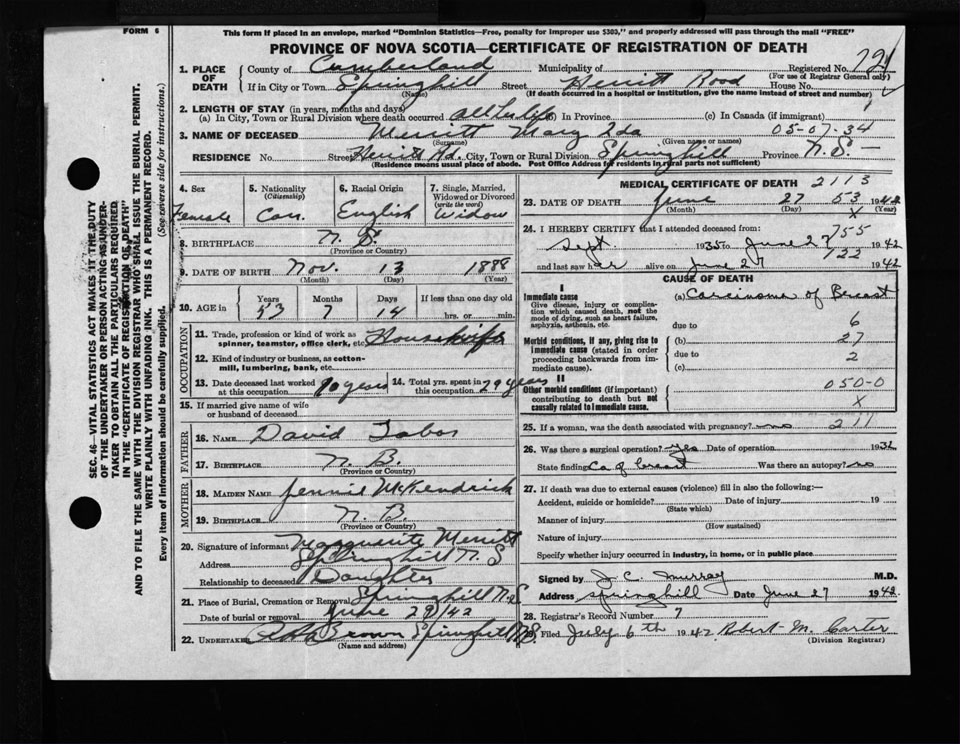 FORM 6
This form if placed in an envelope, marked "Dominion Statistics—Free, penalty for improper use $300," and properly addressed will pass through the mail "FREE"
PROVINCE OF NOVA SCOTIA—CERTIFICATE OF REGISTRATION OF DEATH
1. PLACE OF DEATH
County of Cumberland Municipality of Registered No. 72
(For use of Registrar General only)
If in City or Town Springhill Street Herritt Road House No.
(Name) (If death occurred in a hospital or institution, give the name instead of street and number)
2. LENGTH OF STAY (in years, months and days)
(a) In City, Town or Rural Division where death occurred all her life (b) In Province (c) In Canada (if immigrant)
3. NAME OF DECEASED Merritt Mary Ida 05-07-34
(Surname) (Given name or names)
RESIDENCE No. Street Herritt Rd. City, Town or Rural Division Springhill Province N.S.
(Residence means usual place of abode. Post Office Address for residents in rural parts not sufficient)
4. Sex
Female
5. Nationality
(Citizenship)
Can.
6. Racial Origin
English
7. Single, Married, Widowed or Divorced
(write the word)
Widow
8. BIRTHPLACE N.S.
(Province or Country)
9. DATE OF BIRTH Nov. 13 1888
(Month) (Day) (Year)
10. AGE in Years Months Days If less than one day old
53 7 14 hrs. or min.
OCCUPATION
11. Trade, profession or kind of work as spinner, teamster, office clerk, etc. Housewife
12. Kind of industry or business, as cotton-mill, lumbering, bank, etc.
13. Date deceased last worked at this occupation years
14. Total yrs. spent in this occupation 29 years
15. If married give name of wife or husband of deceased
FATHER
16. NAME David Tabor
17. BIRTHPLACE N.B.
(Province or Country)
MOTHER
18. MAIDEN NAME Jennie McKendrick
19. BIRTHPLACE N.B.
(Province or Country)
20. Signature of informant Marguerite Merritt
Address Springhill N.S
Relationship to deceased Daughter
21. Place of Burial, Cremation or Removal Springhill N.S
Date of burial or removal June 29/42
22. UNDERTAKER Brown Springhill N.S.
(Name and address)
MEDICAL CERTIFICATE OF DEATH 2113
23. DATE OF DEATH June 27 53 1942
(Month) (Day) X (Year)
24. I HEREBY CERTIFY that I attended deceased from: 755
Sept. 1935 to June 27 1942
722
and last saw her alive on June 27 1942
CAUSE OF DEATH
I
Immediate cause (a) Carcinoma of Breast
Give disease, injury or complication which caused death, not the mode of dying, such as heart failure, asphyxia, asthenia, etc.
due to 6
Morbid conditions, if any, giving rise to immediate cause (stated in order proceeding backwards from immediate cause).
(b) 27
due to 2
(c)
II
Other morbid conditions (if important) contributing to death but not causally related to immediate cause.
050-0
X
25. If a woman, was the death associated with pregnancy? no 211
26. Was there a surgical operation? Yes Date of operation 1932
State finding Ca of breast Was there an autopsy? no
27. If death was due to external causes (violence) fill in also the following:—
Accident, suicide or homicide? Date of injury 19
(State which)
Manner of injury
(How sustained)
Nature of injury
Specify whether injury occurred in industry, in home, or in public place
Signed by J. C. Murray M.D.
Address Springhill Date June 27 1942
28. Registrar's Record Number 7
29. Filed July 6th 1942 Robert M. Carter
(Division Registrar)
SEC. 46—VITAL STATISTICS ACT MAKES IT THE DUTY
OF THE UNDERTAKER OR PERSON ACTING AS UNDER-
TAKER TO OBTAIN ALL THE PARTICULARS REQUIRED
IN THE "CERTIFICATE OF REGISTRATION OF DEATH"
AND TO FILE THE SAME WITH THE DIVISION REGISTRAR WHO SHALL ISSUE THE BURIAL PERMIT.
WRITE PLAINLY WITH UNFADING INK. THIS IS A PERMANENT RECORD.
Every item of information should be carefully supplied. (See reverse side for instructions.)